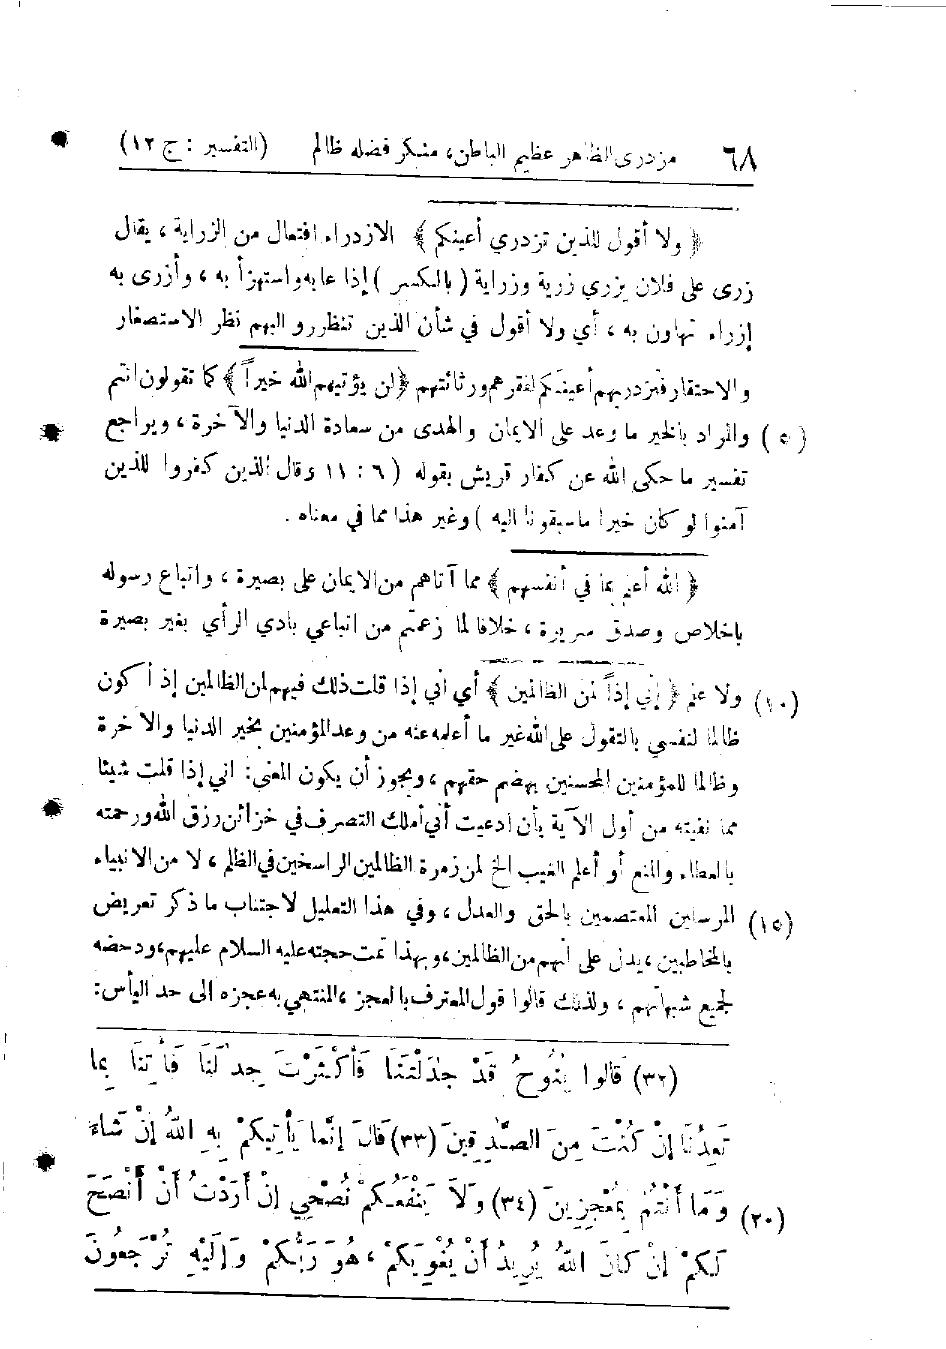 ٦٨ مزدرى الظاهر عظيم الباطن، منكر فضله ظالم (التفسير : ج ١٢)
﴿ ولا أقول للذين تزدري أعينكم ﴾ الازدراء افتعال من الزراية ، يقال
زرى على فلان يزري زرية وزراية ( بالكسر ) إذا عابه واستهزأ به ، وأزرى به
إزراء تهاون به ، أي ولا أقول في شأن الذين تنظرون اليهم نظر الاستصغار
والاحتقار فتزدريهم أعينكم لفقرهم ورثاثتهم ﴿لن يؤتيهم الله خيراً ﴾ كما تقولون انتم
(٥) والمراد بالخير ما وعد على الايمان والهدى من سعادة الدنيا والآخرة ، ويراجع
تفسير ما حكى الله عن كفار قريش بقوله ( ٤٦ : ١١ وقال الذين كفروا للذين
آمنوا لو كان خيرا ما سبقونا اليه ) وغير هذا مما في معناه .
﴿ الله أعلم بما في أنفسهم ﴾ مما آتاهم من الايمان على بصيرة ، واتباع رسوله
باخلاص وصدق سريرة ، خلافا لما زعمتم من اتباعي بادي الرأي بغير بصيرة
(١٠) ولا علم ﴿ إني إذاً لمن الظالمين ﴾ أي أني إذا قلت ذلك فيهم لمن الظالمين إذ أكون
ظالما لنفسي بالتقول على الله غير ما أعلمه عنه من وعد المؤمنين بخير الدنيا والآخرة
وظالما للمؤمنين المحسنين بهضم حقهم ، ويجوز أن يكون المعنى: اني إذا قلت شيئا
مما نفيته من أول الآية بأن ادعيت أني أملك التصرف في خزائن رزق الله ورحمته
بالعطاء والمنع أو أعلم الغيب الخ لمن زمرة الظالمين الراسخين في الظلم ، لا من الانبياء
(١٥) المرسلين المعتصمين بالحق والعدل ، وفي هذا التعليل لاجتناب ما ذكر تعريض
بالمخاطبين ، يدل على أنهم من الظالمين ، وبهذا تمت حجته عليه السلام عليهم، ودحضه
لجميع شبهاتهم ، ولذلك قالوا قول المعترف بالعجز ، المنتهي به عجزه الى حد اليأس:
(٣٢) قَالُوا يٰنُوحُ قَدْ جٰدَلْتَنَا فَأَكْثَرْتَ جِدٰلَنَا فَأْتِنَا بِمَا
تَعِدُنَا إِنْ كُنْتَ مِنَ الصّٰدِقِينَ (٣٣) قَالَ إِنَّمَا يَأْتِيكُمْ بِهِ اللهُ إِنْ شَاءَ
(٢٠) وَمَا أَنْتُمْ بِمُعْجِزِينَ (٣٤) وَلَا يَنْفَعُكُمْ نُصْحِي إِنْ أَرَدْتُ أَنْ أَنْصَحَ
لَكُمْ إِنْ كَانَ اللهُ يُرِيدُ أَنْ يُغْوِيَكُمْ ، هُوَ رَبُّكُمْ وَإِلَيْهِ تُرْجَعُونَ